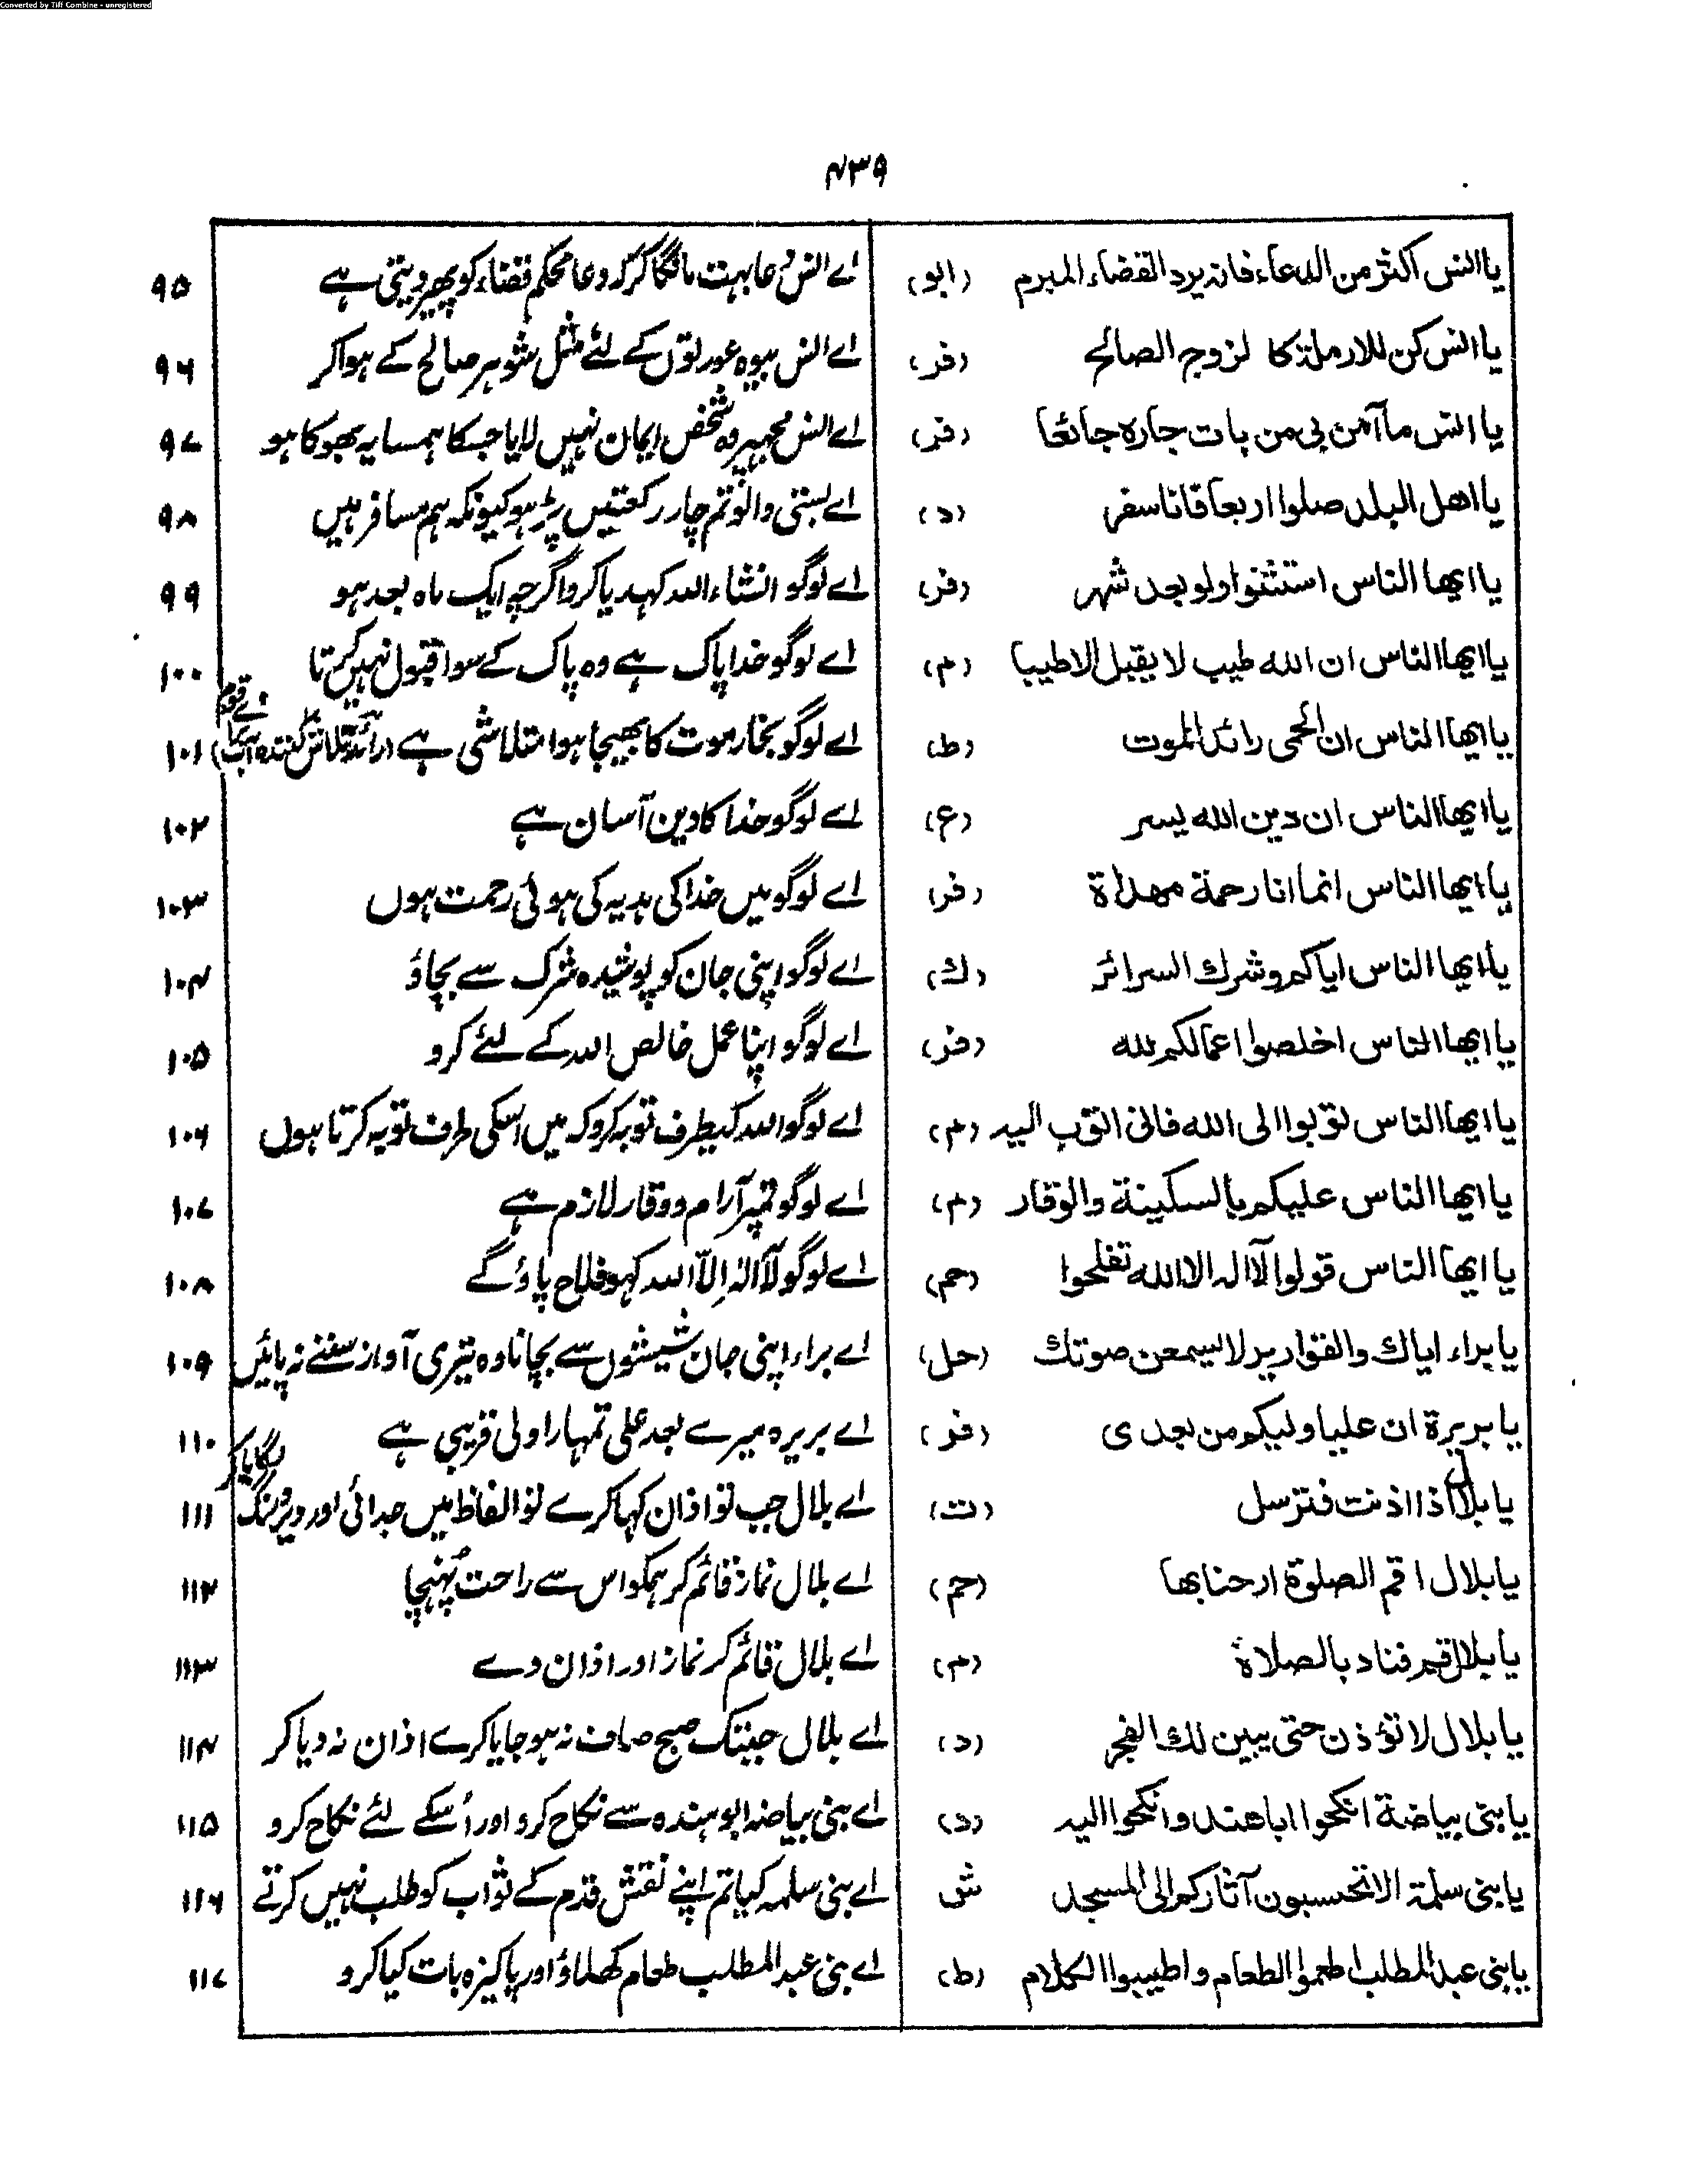 Converted by Tiff Combine - unregistered
۴۳۹
یا انس اکثر من الدعاء فانہ یرد القضاء المبرم (ابو) اے انس دعا بہت مانگا کر کہ دعا محکم قضاء کو پھیر دیتی ہے ۹۵
یا انس کن للارملۃ کا لزوج الصالح (فر) اے انس بیوہ عورتوں کے لئے مثل شوہر صالح کے ہوا کر ۹۶
یا انس ما آمن بی من بات جارہ جائعا (فر) اے انس مجھپر وہ شخص ایمان نہیں لایا جسکا ہمسایہ بھوکا ہو ۹۷
یا اھل البلد صلوا اربعا فانا سفر (د) اے بستی والو تم چار رکعتیں پڑہو کیونکہ ہم مسافر ہیں ۹۸
یا ایھا الناس استثنوا ولو بعد شھر (فر) اے لوگو انشاء اللہ کہدیا کرو اگرچہ ایک ماہ بعد ہو ۹۹
یا ایھا الناس ان اللہ طیب لا یقبل الا طیبا (م) اے لوگو خدا پاک ہے وہ پاک کے سوا قبول نہیں کرتا ۱۰۰
یا ایھا الناس ان الحمی رائد الموت (ط) اے لوگو بخار موت کا بھیجا ہوا متلاشی ہے (رائد تلاش کنندہ آب ۱۰۱
یا ایھا الناس ان دین اللہ یسر (ع) اے لوگو خدا کا دین آسان ہے ۱۰۲
یا ایھا الناس انما انا رحمۃ مھداۃ (فر) اے لوگو میں خدا کی ہدیہ کی ہوئی رحمت ہوں ۱۰۳
یا ایھا الناس ایاکم وشرك السرائر (ك) اے لوگو اپنی جان کو پوشیدہ شرک سے بچاؤ ۱۰۴
یا ایھا الناس اخلصوا اعمالکم للہ (فر) اے لوگو اپنا عمل خالص اللہ کے لئے کرو ۱۰۵
یا ایھا الناس توبوا الی اللہ فانی اتوب الیہ (م) اے لوگو اللہ کیطرف توبہ کرو کہ میں اسکی طرف توبہ کرتا ہوں ۱۰۶
یا ایھا الناس علیکم بالسکینۃ والوقار (م) اے لوگو تمپر آرام و وقار لازم ہے ۱۰۷
یا ایھا الناس قولوا لآ الہ الا اللہ تفلحوا (حم) اے لوگو لَآ اِلٰہ اِلّا اللہ کہو فلاح پاؤ گے ۱۰۸
یا براء ایاك والقواریر لا یسمعن صوتك (حل) اے براء اپنی جان شیشوں سے بچانا وہ تیری آواز سننے نہ پائیں ۱۰۹
یا بریرۃ ان علیا ولیکم من بعدی (فر) اے بریرہ میرے بعد علی تمہارا ولی قریبی ہے ۱۱۰
یا بلال اذا اذنت فترسل (ت) اے بلال جب تو اذان کہا کرے تو الفاظ میں جدائی اور دیر ودرنگ لگایا کر ۱۱۱
یا بلال اقم الصلوۃ ارحنا بھا (حم) اے بلال نماز قائم کر ہمکو اس سے راحت پُہنچا ۱۱۲
یا بلال قم فناد بالصلاۃ (م) اے بلال قائم کر نماز اور اذان دے ۱۱۳
یا بلال لا تؤذن حتی یبین لك الفجر (د) اے بلال جبتک صبح صاف نہ ہو جایا کرے اذان نہ دیا کر ۱۱۴
یا بنی بیاضۃ انکحوا ابا ھند وانکحوا الیہ (د) اے بنی بیاضہ ابو ہندہ سے نکاح کرو اور اُسکے لئے نکاح کرو ۱۱۵
یا بنی سلمۃ الا تحسبون آثارکم الی المسجد ش اے بنی سلمہ کیا تم اپنے نقش قدم کے ثواب کو طلب نہیں کرتے ۱۱۶
یا بنی عبد المطلب اطعموا الطعام و اطیبوا الکلام (ط) اے بنی عبد المطلب طعام کھلاؤ اور پاکیزہ بات کیا کرو ۱۱۷